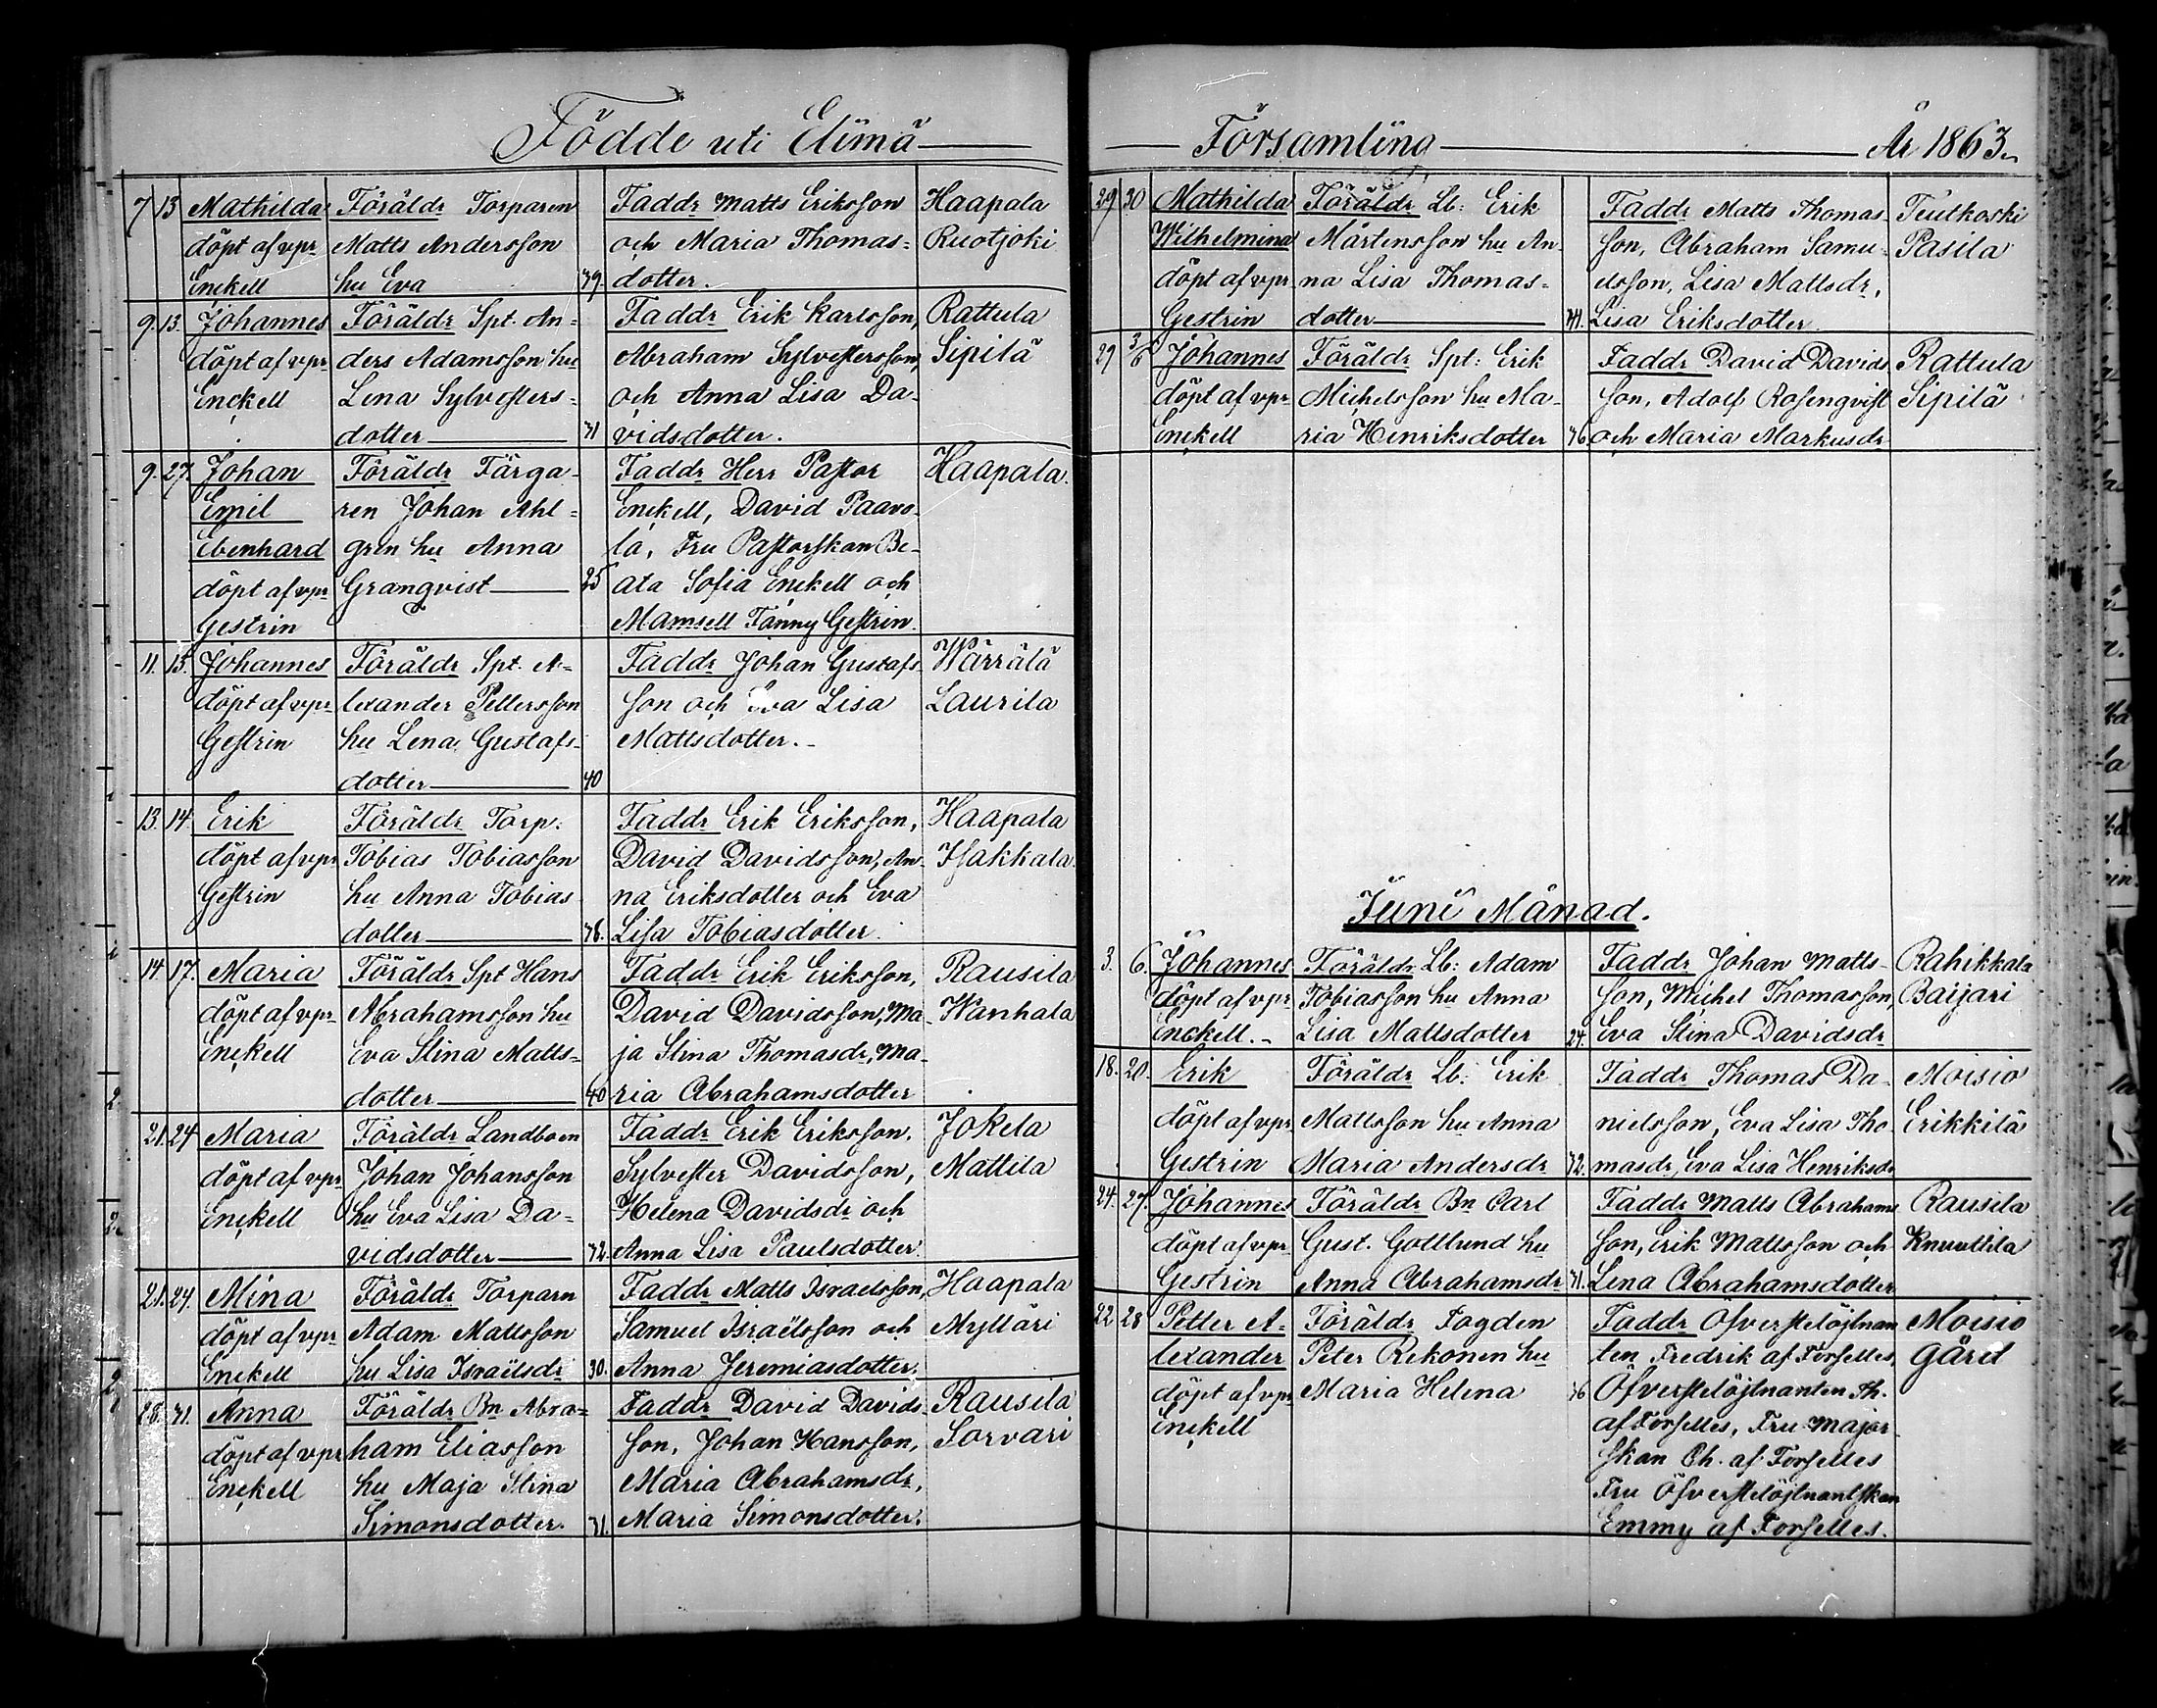 Födde uti Elimä
7 13 Mathilda Föräldr Torparen Faddr Matts Eriksson Haapala
döpt af vpr Matts Andersson och Maria Thomas= Ruotjoki
Enckell hu Eva 39. dotter.
9. 13. Johannes Föräldr Spt. An= Faddr Erik Karlsson, Rattula
döpt af vpr ders Adamsson hu Abraham Sylvestersson, Sipilä
Enckell Lena Sylvesters= och Anna Lisa Da-
dotter 31 vidsdotter.
9. 27. Johan Föräldr Färga- Faddr Herr Pastor Haapala.
Emil ren Johan Ahl= Enckell, David Paavo-
Ebenhard gren hu Anna la, Fru Pastorskan Be-
döpt af vpr Granqvist 25 ata Sofia Enckell och
Gestrin Mamsell Fanny Gestrin.
11. 13. Johannes Föräldr Spt. A= Faddr Johan Gustafs- Wärrälä
döpt af vpr lexander Pettersson son och Eva Lisa Laurila
Gestrin hu Lena Gustafs- Mattsdotter.-
dotter 40
13. 14. Erik Föräldr Torp: Faddr Erik Eriksson, Haapala
döpt af vpr Tobias Tobiasson David Davidsson, An- Isakkala.
Gestrin hu Anna Tobias na Eriksdotter och Eva
dotter 38. Lisa Tobiasdotter.
14. 17. Maria Föräldr Spt Hans Faddr Erik Eriksson, Rausila
döpt af vpr Abrahamsson hu David Davidsson, Ma- Wanhala
Enckell Eva Stina Matts- ja Stina Thomasdr, Ma-
dotter 40 ria Abrahamsdotter
21. 24. Maria Föräldr Landboen Faddr Erik Eriksson. Jokela
döpt af vpr Johan Johansson Sylvester Davidsson, Mattila
Enckell hu Eva Lisa Da= Helena Davidsdr och
vidsdotter 32. Anna Lisa Paulsdotter.
21. 24. Mina Föräldr Torparn Faddr Matts Israelsson, Haapala
döpt af vpr Adam Mattsson Samuel Israëlsson och Mylläri
Enckell hu Lisa Israëlsdr 30. Anna Jeremiasdotter.
28. 31. Anna Föräldr Bn Abra= Faddr David Davids- Rausila
döpt af vpr ham Eliasson son, Johan Hansson, Sorvari
Enckell hu Maja Stina Maria Abrahamsdr,
Simonsdotter. 31. Maria Simonsdotter.
Församling År 1863.
29 30 Mathilda Föräldr Lb: Erik Faddr Matts Thomas Teutkoski
Wilhelmina Mårtensson hu An- son, Abraham Samu- Pasila
döpt af vpr na Lisa Thomas= elsson, Lisa Mattsdr,
Gestrin dotter 31. Lisa Eriksdotter.
29 3/6 Johannes Föräldr Spt: Erik Faddr David Davids Rattula
döpt af vpr Michelsson hu Ma- son, Adolf Rosenqvist Sipilä
Enckell ria Henriksdotter 36 och Maria Markusdr
Juni Månad.
3. 6. Johannes Föräldr Lb: Adam Faddr Johan Matts- Rahikkala
döpt af vpr Tobiasson hu Anna son, Michel Thomasson, Baijari
Enckell.- Lisa Mattsdotter 24. Eva Stina Davidsdr
18. 20. Erik Föräldr Lb: Erik Faddr Thomas Da- Moisio
döpt af vpr Mattsson hu Anna nielsson, Eva Lisa Tho- Erikkilä
Gestrin Maria Andersdr 32. masdr, Eva Lisa Henriksdr
24. 27. Johannes Föräldr Bn Carl Faddr Matts Abrahams Rausila
döpt af vpr Gust. Gottlund hu son, Erik Mattsson och Knuuttila
Gestrin Anna Abrahamsdr 31. Lena Abrahamsdotter
22 28 Petter A- Föräldr Fogden Faddr Öfverstelöjtnan Moisio
lexander Peter Rekonen hu ten Fredrik af Forselles, Gård
döpt af vpr Maria Helena 36 Öfverstelöjtnanten Th.
Enckell af Forselles, Fru Major
skan Ch. af Forselles
Fru Öfverstelöjtnantskan
Emmy af Forselles.